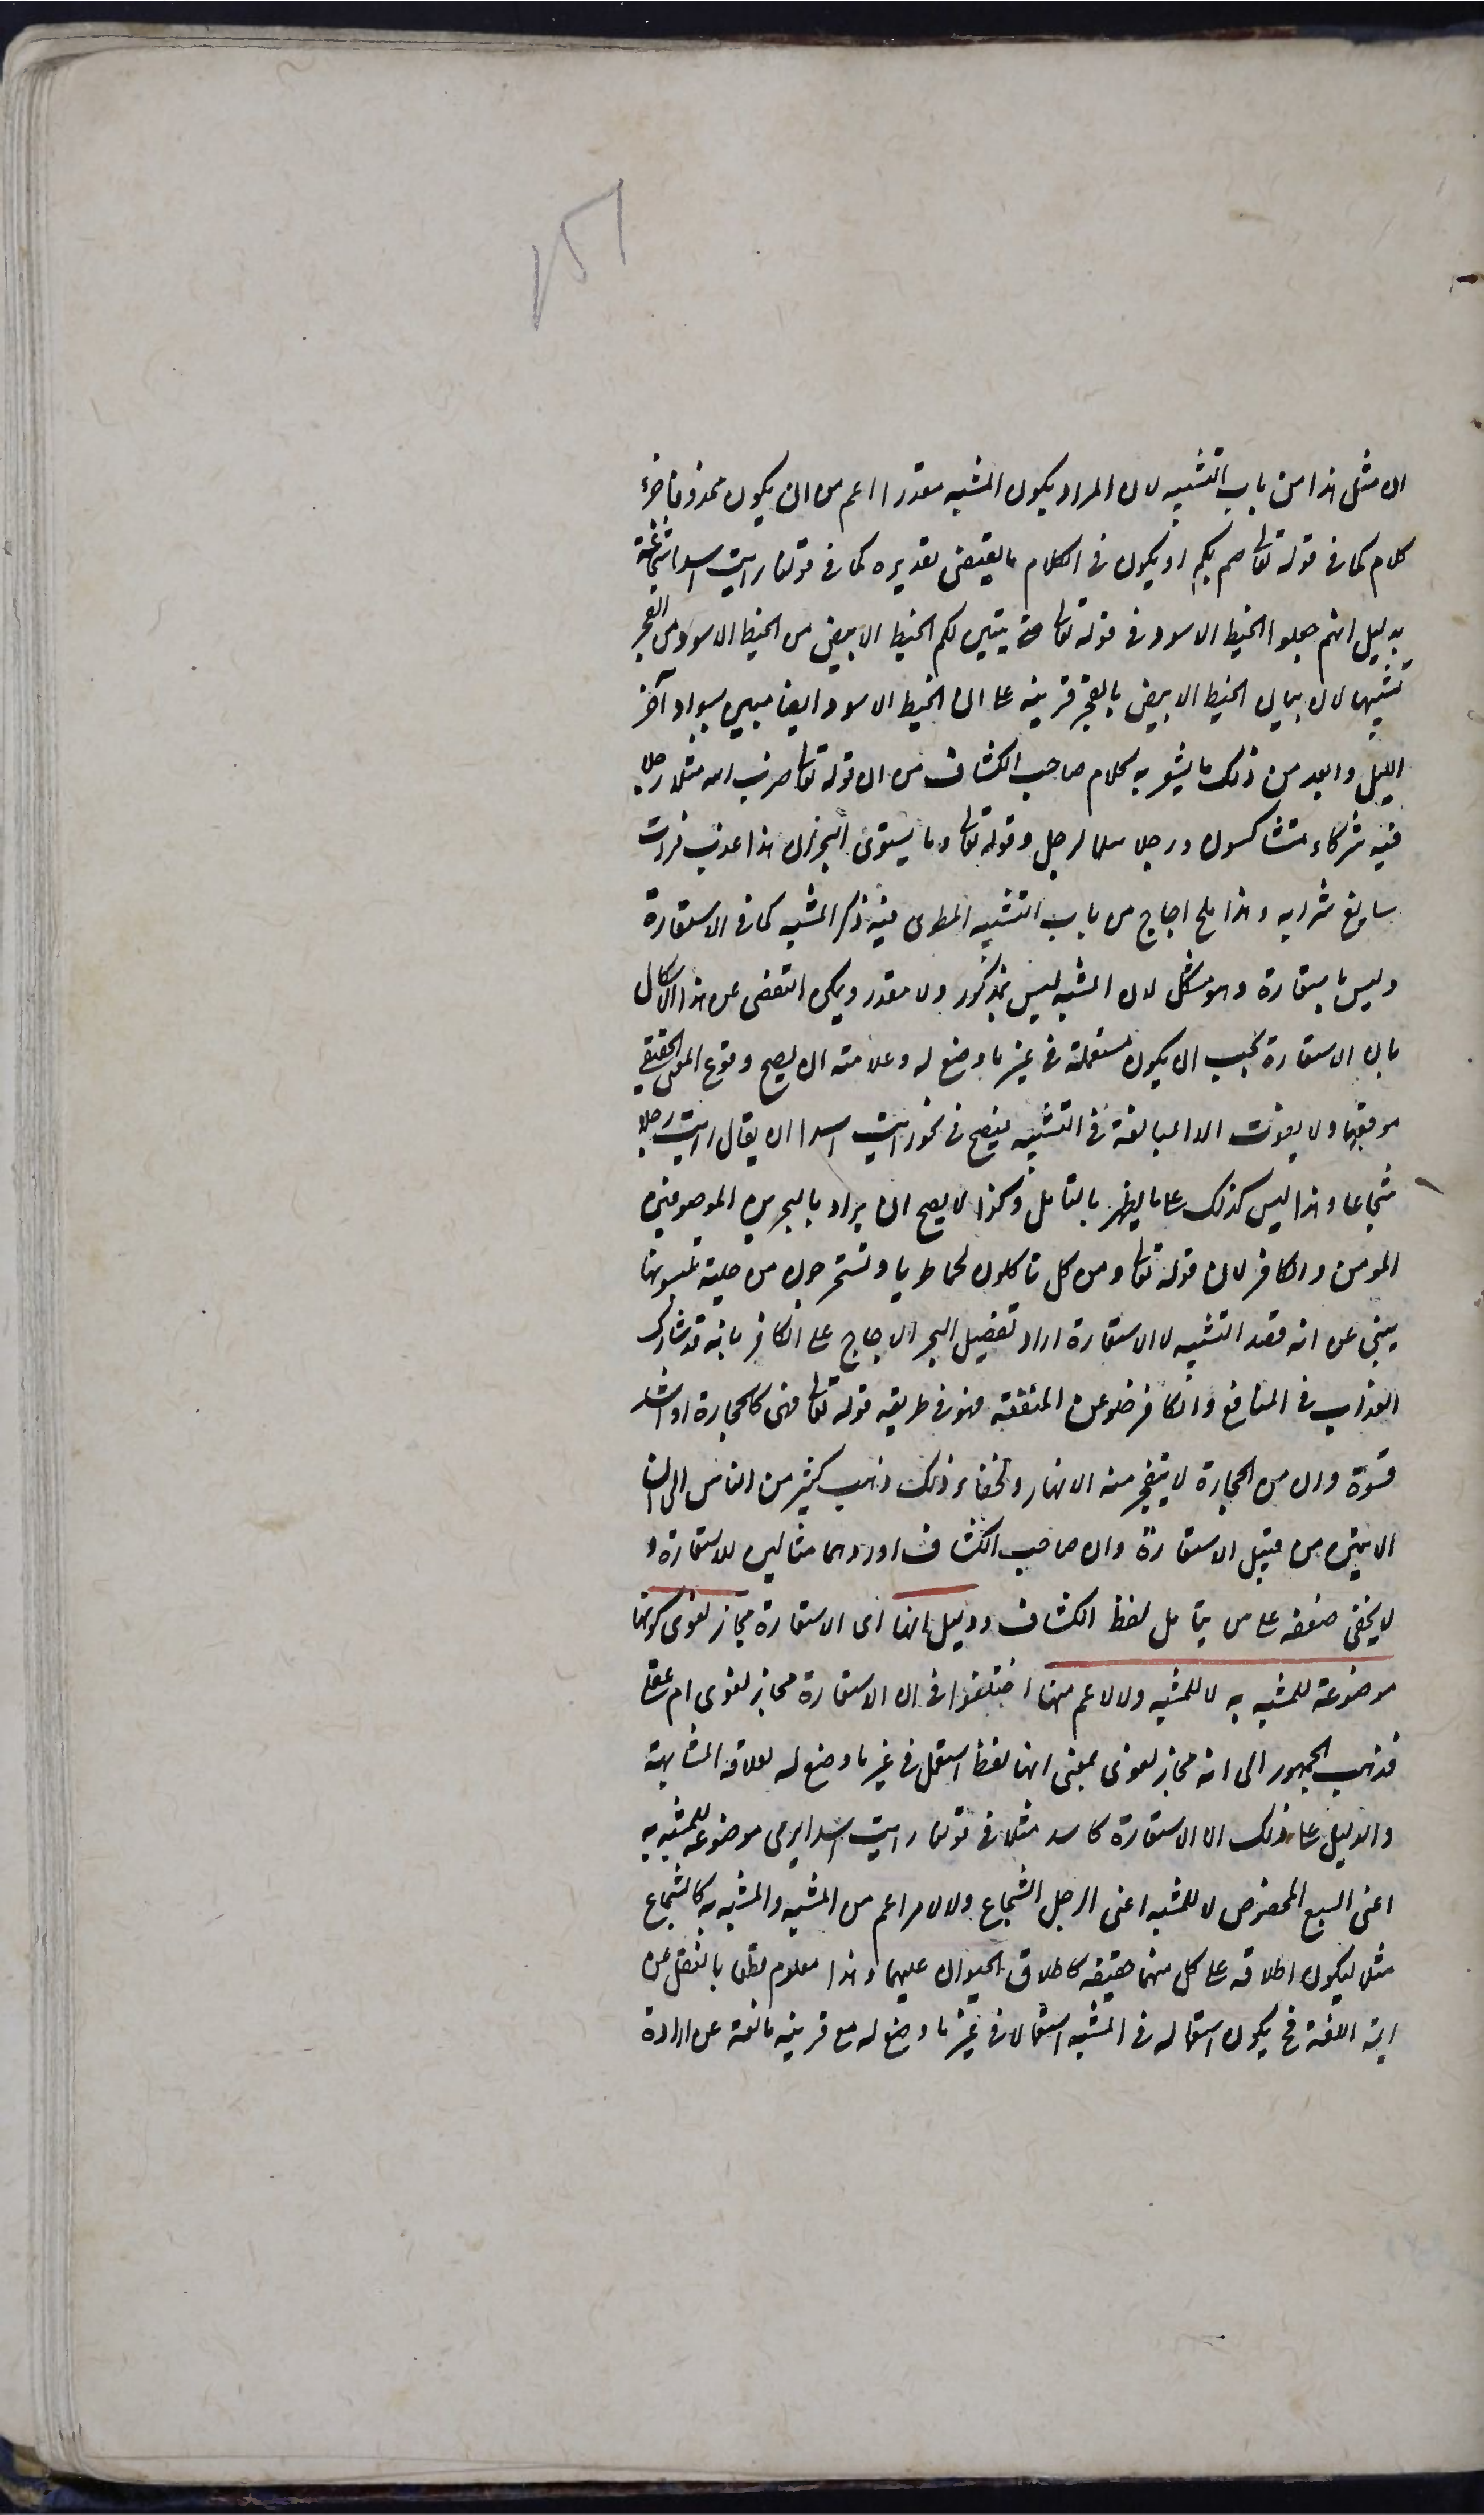 ١٥١
ان مثل هذا من باب التشبيه لان المراد بكون المشبه مقدرا اعم من ان يكون محذوفا جزء
كلام كما في قوله تعا صم بكم او يكون في الكلام ما يقتضى تقديره كما في قولنا رايت اسدا شجاعة
بدليل انهم جعلوا الخيط الاسود في قوله تعا حتى يتبين لكم الخيط الابيض من الخيط الاسود من الفجر
تشبيها لان بيان الخيط الابيض بالفجر قرينة على ان الخيط الاسود ايضا مبين بسواد آخر
الليل وابعد من ذلك ما يشعر به كلام صاحب الكشاف من ان قوله تعا ضرب الله مثلا رجلا
فيه شركاء متشاكسون ورجلا سلما لرجل وقوله تعا وما يستوى البحران هذا عذب فرات
سايغ شرابه وهذا ملح اجاج من باب التشبيه المطوى فيه ذكر المشبه كما في الاستعارة
وليس باستعارة وهو مشكل لان المشبه ليس بمذكور ولا مقدر ويمكن التفصى عن هذا الاشكال
بان الاستعارة يجب ان يكون مستعملة في غير ما وضع له وعلامته ان يصح وقوع المعنى الحقيقي
موقعها ولا يفوت الا المبالغة في التشبيه فيصح في نحو رايت اسدا ان يقال رايت رجلا
شجاعا وهذا ليس كذلك على ما يظهر بالتامل وكذا لا يصح ان يراد بالبحرين الموصوفين
المومن والكافر لان قوله تعا ومن كل تاكلون لحما طريا وتستخرجون من حلية تلبسونها
يبنى عن انه قصد التشبيه لا الاستعارة اراد تفضيل البحر الاجاج على الكافر بانه قد شارك
العذاب في المنافع والكافر خلو عن المنفعة فهو في طريقه قوله تعا فهى كالحجارة او اشد
قسوة وان من الحجارة لا يتفجر منه الانهار ولخفاء ذلك ذهب كثير من الناس الى ان
الايتين من قبيل الاستعارة وان صاحب الكشاف اوردهما مثالين للاستعارة و
لا يخفى ضعفه على من يتامل لفظ الكشاف ودليل انها اى الاستعارة مجاز لغوى كونها
موضوعة للمشبه به لا للمشبه ولا لاعم منهما اختلفوا في ان الاستعارة مجاز لغوى ام عقلى
فذهب الجمهور الى انه مجاز لغوى بمعنى انها لفظ استعمل في غير ما وضع له لعلاقة المشابهة
والدليل على ذلك ان الاستعارة كاسد مثلا في قولنا رايت اسدا يرمى موضوعة للمشبه به
اعنى السبع المخصوص لا للمشبه اعنى الرجل الشجاع ولا لامر اعم من المشبه والمشبه به كالشجاع
مثلا ليكون اطلاقه على كل منهما حقيقة كاطلاق الحيوان عليهما وهذا معلوم قطعا بالنقل عن
ايمة اللغة فح يكون استعماله في المشبه استعمالا في غير ما وضع له مع قرينه مانعة عن ارادة